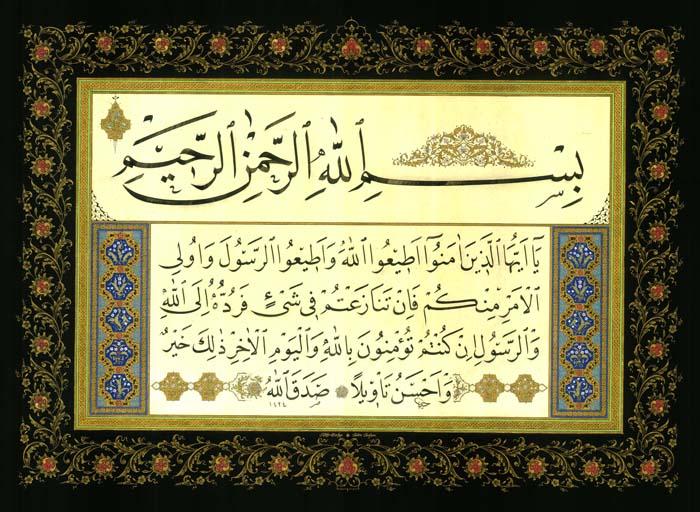 بِسْمِ اللهِ الرَّحْمٰنِ الرَّحِيْمِ
يَا اَيُّهَا الَّذِيْنَ اٰمَنُوْا اَطِيْعُوا اللهَ وَاَطِيْعُوا الرَّسُوْلَ وَاُولِى
الْاَمْرِ مِنْكُمْ فَاِنْ تَنَازَعْتُمْ فِى شَىْءٍ فَرُدُّوْهُ اِلَى اللهِ
وَالرَّسُوْلِ اِنْ كُنْتُمْ تُؤْمِنُوْنَ بِاللهِ وَالْيَوْمِ الْاٰخِرِ ذٰلِكَ خَيْرٌ
وَاَحْسَنُ تَاْوِيْلًا صَدَقَ اللهُ